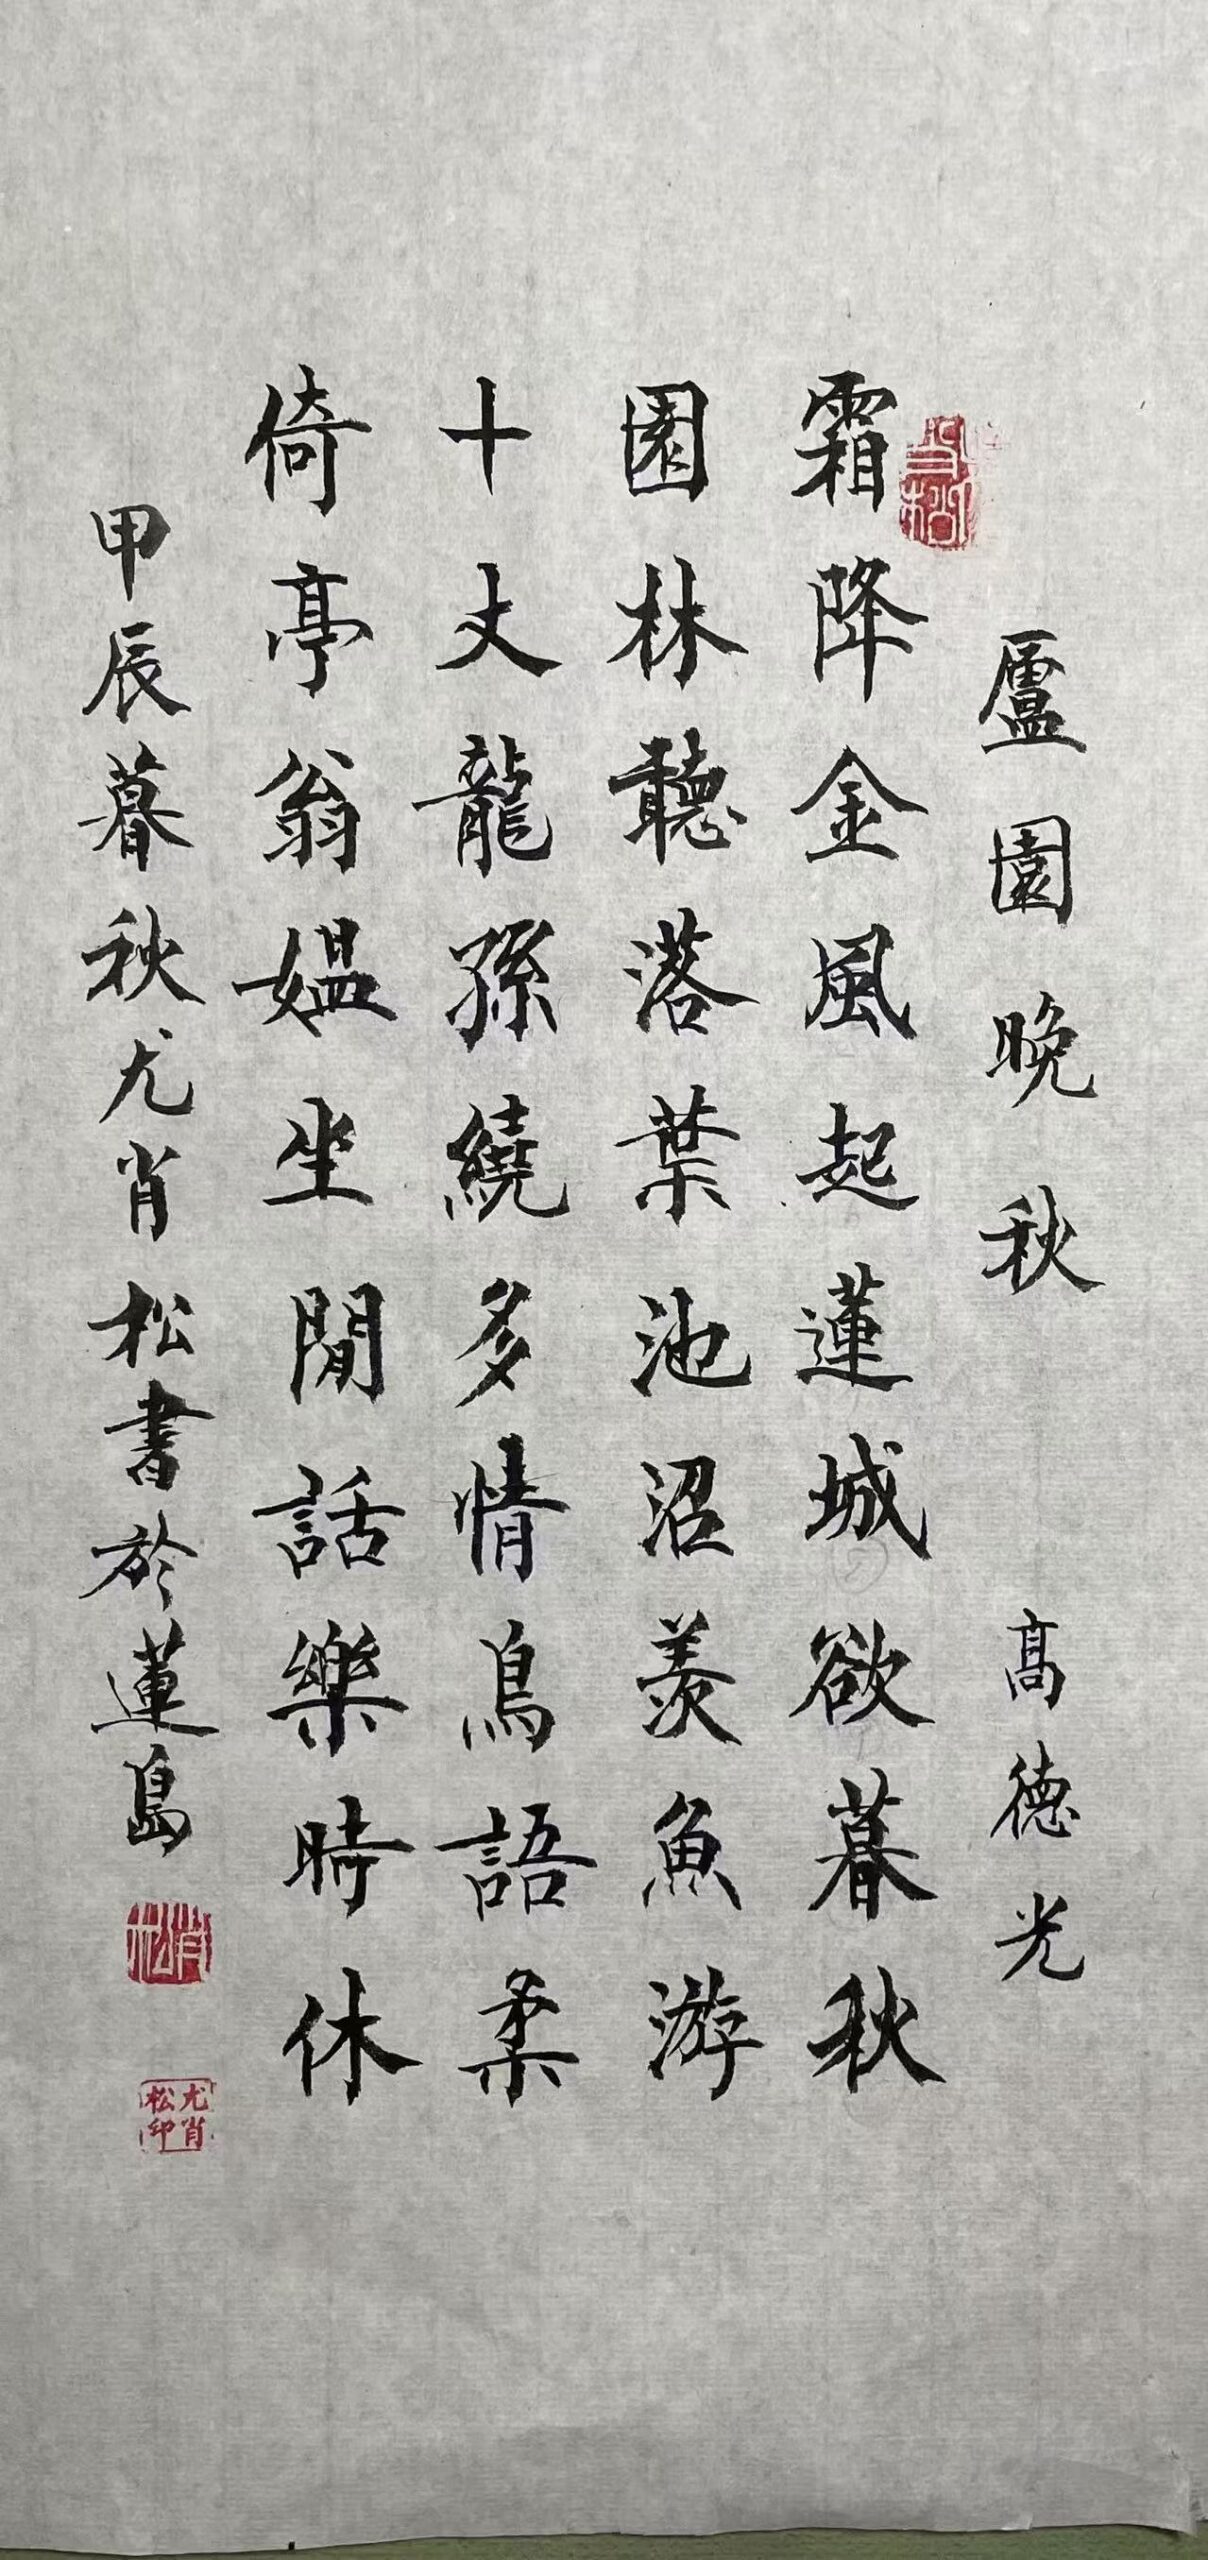 廬園晚秋 高德光
霜降金風起蓮城欲暮秋
園林聽落葉池沼羨魚游
十丈龍孫繞多情鳥語柔
倚亭翁媼坐閒話樂時休
甲辰暮秋尤肖松書於蓮島
肖松
尤肖松印